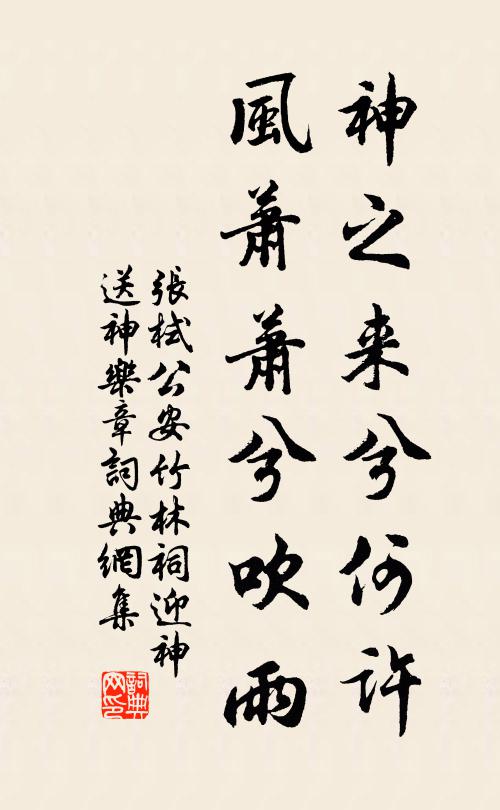 神之来兮何許
風蕭蕭兮吹雨
張栻公安竹林祠迎神
送神樂章詞典網集
詞典
网印